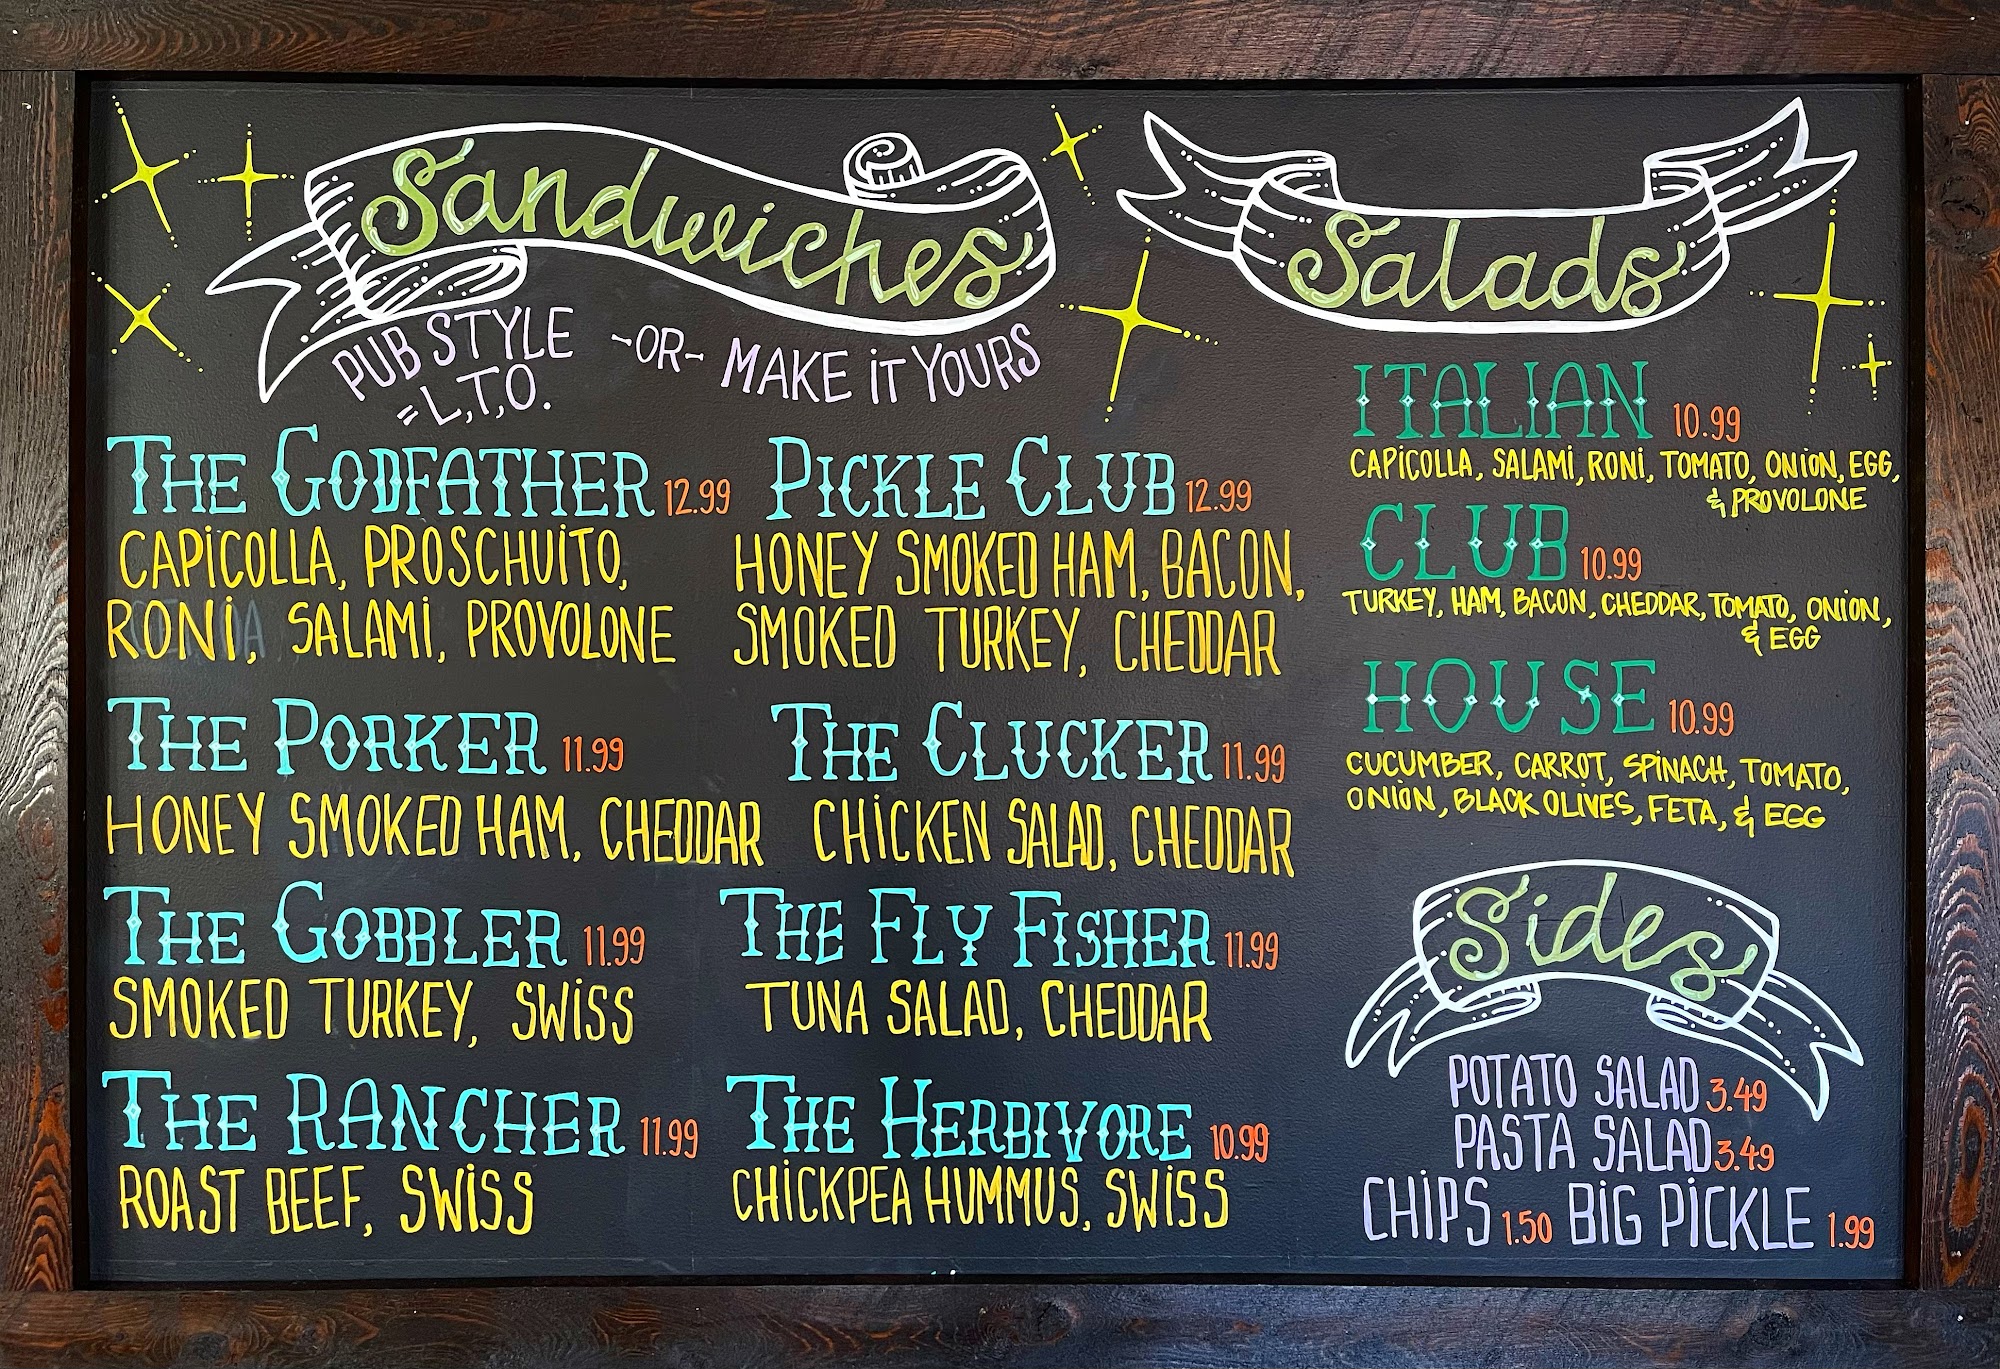 Sandwiches
PUB STYLE -OR- MAKE iT YOURS
=L,T,O.
THE GODFATHER 12.99
CAPiCOLLA, PROSCHUiTO,
RONi, SALAMi, PROVOLONE
THE PORKER 11.99
HONEY SMOKED HAM, CHEDDAR
THE GOBBLER 11.99
SMOKED TURKEY, SWiSS
THE RANCHER 11.99
ROAST BEEF, SWiSS
PICKLE CLUB 12.99
HONEY SMOKED HAM, BACON,
SMOKED TURKEY, CHEDDAR
THE CLUCKER 11.99
CHiCKEN SALAD, CHEDDAR
THE FLY FISHER 11.99
TUNA SALAD, CHEDDAR
THE HERBIVORE 10.99
CHiCKPEA HUMMUS, SWiSS
Salads
ITALIAN 10.99
CAPiCOLLA, SALAMi, RONi, TOMATO, ONiON, EGG,
& PROVOLONE
CLUB 10.99
TURKEY, HAM, BACON, CHEDDAR, TOMATO, ONiON,
& EGG
HOUSE 10.99
CUCUMBER, CARROT, SPiNACH, TOMATO,
ONiON, BLACK OLiVES, FETA, & EGG
Sides
POTATO SALAD 3.49
PASTA SALAD 3.49
CHiPS 1.50 BiG PiCKLE 1.99